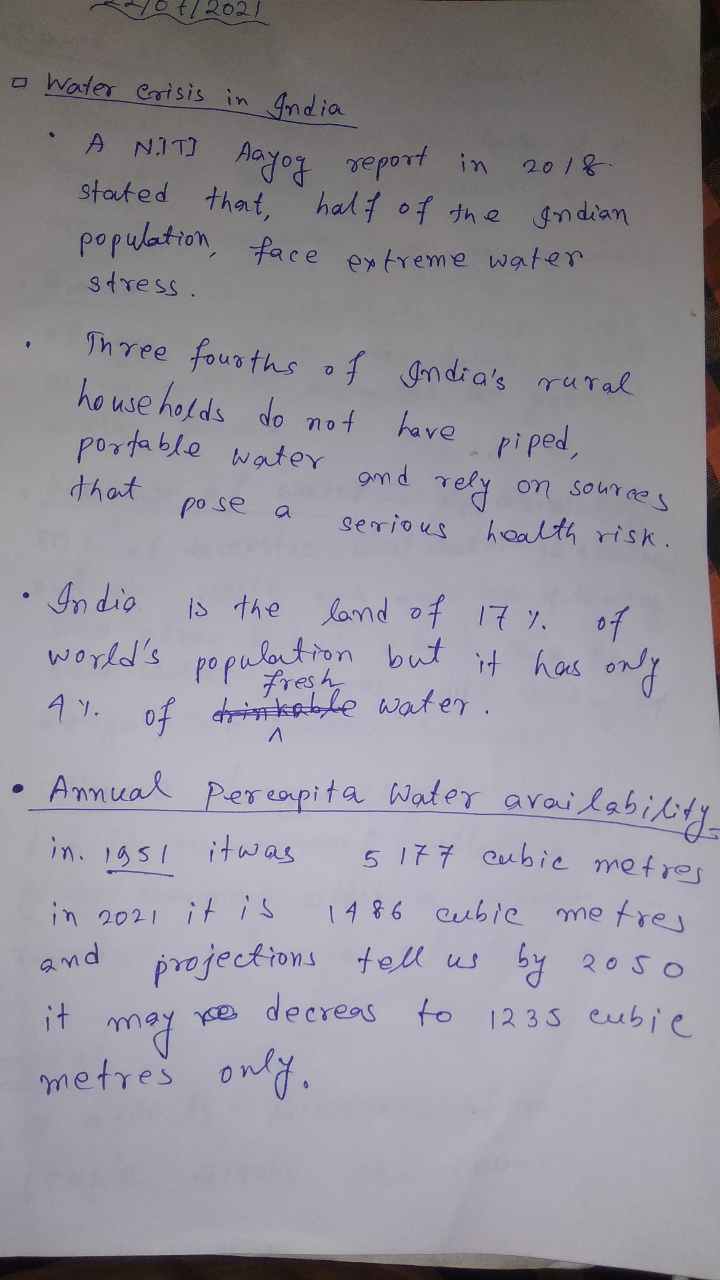 22/07/2021
Water crisis in India
• A NITI Aayog report in 2018
stated that, half of the Indian
population, face extreme water
stress.
• Three fourths of India's rural
households do not have piped,
portable water and rely on sources
that pose a serious health risk.
• India is the land of 17 % of
world's population but it has only
fresh
4 % of drinkable water.
• Annual Percapita Water availability
in. 1951 it was 5177 cubic metres
in 2021 it is 1486 cubic metres
and projections tell us by 2050
it may decreas to 1235 cubic
metres only.